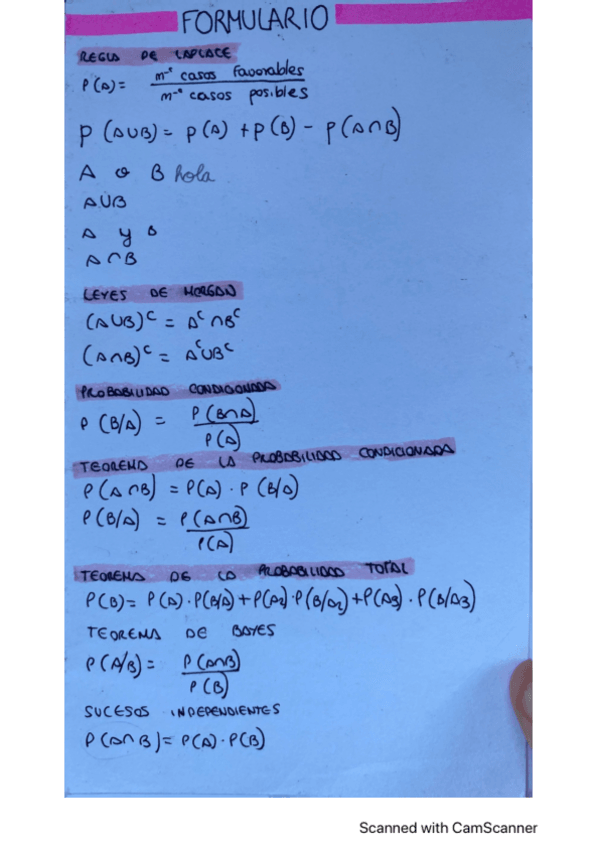 FORMULARIO
REGLA DE LAPLACE
P(A)= nº casos favorables / nº casos posibles
P(A∪B)= P(A) + P(B) - P(A∩B)
A o B hola
A∪B
A y B
A∩B
LEYES DE MORGAN
(A∪B)ᶜ = Aᶜ∩Bᶜ
(A∩B)ᶜ = Aᶜ∪Bᶜ
PROBABILIDAD CONDICIONADA
P(B/A) = P(B∩A) / P(A)
TEOREMA DE LA PROBABILIDAD CONDICIONADA
P(A∩B) = P(A) · P(B/A)
P(B/A) = P(A∩B) / P(A)
TEOREMA DE LA PROBABILIDAD TOTAL
P(B)= P(A)·P(B/A)+P(A2)·P(B/A2)+P(A3)·P(B/A3)
TEOREMA DE BAYES
P(A/B)= P(A∩B) / P(B)
SUCESOS INDEPENDIENTES
P(A∩B)= P(A)·P(B)
Scanned with CamScanner